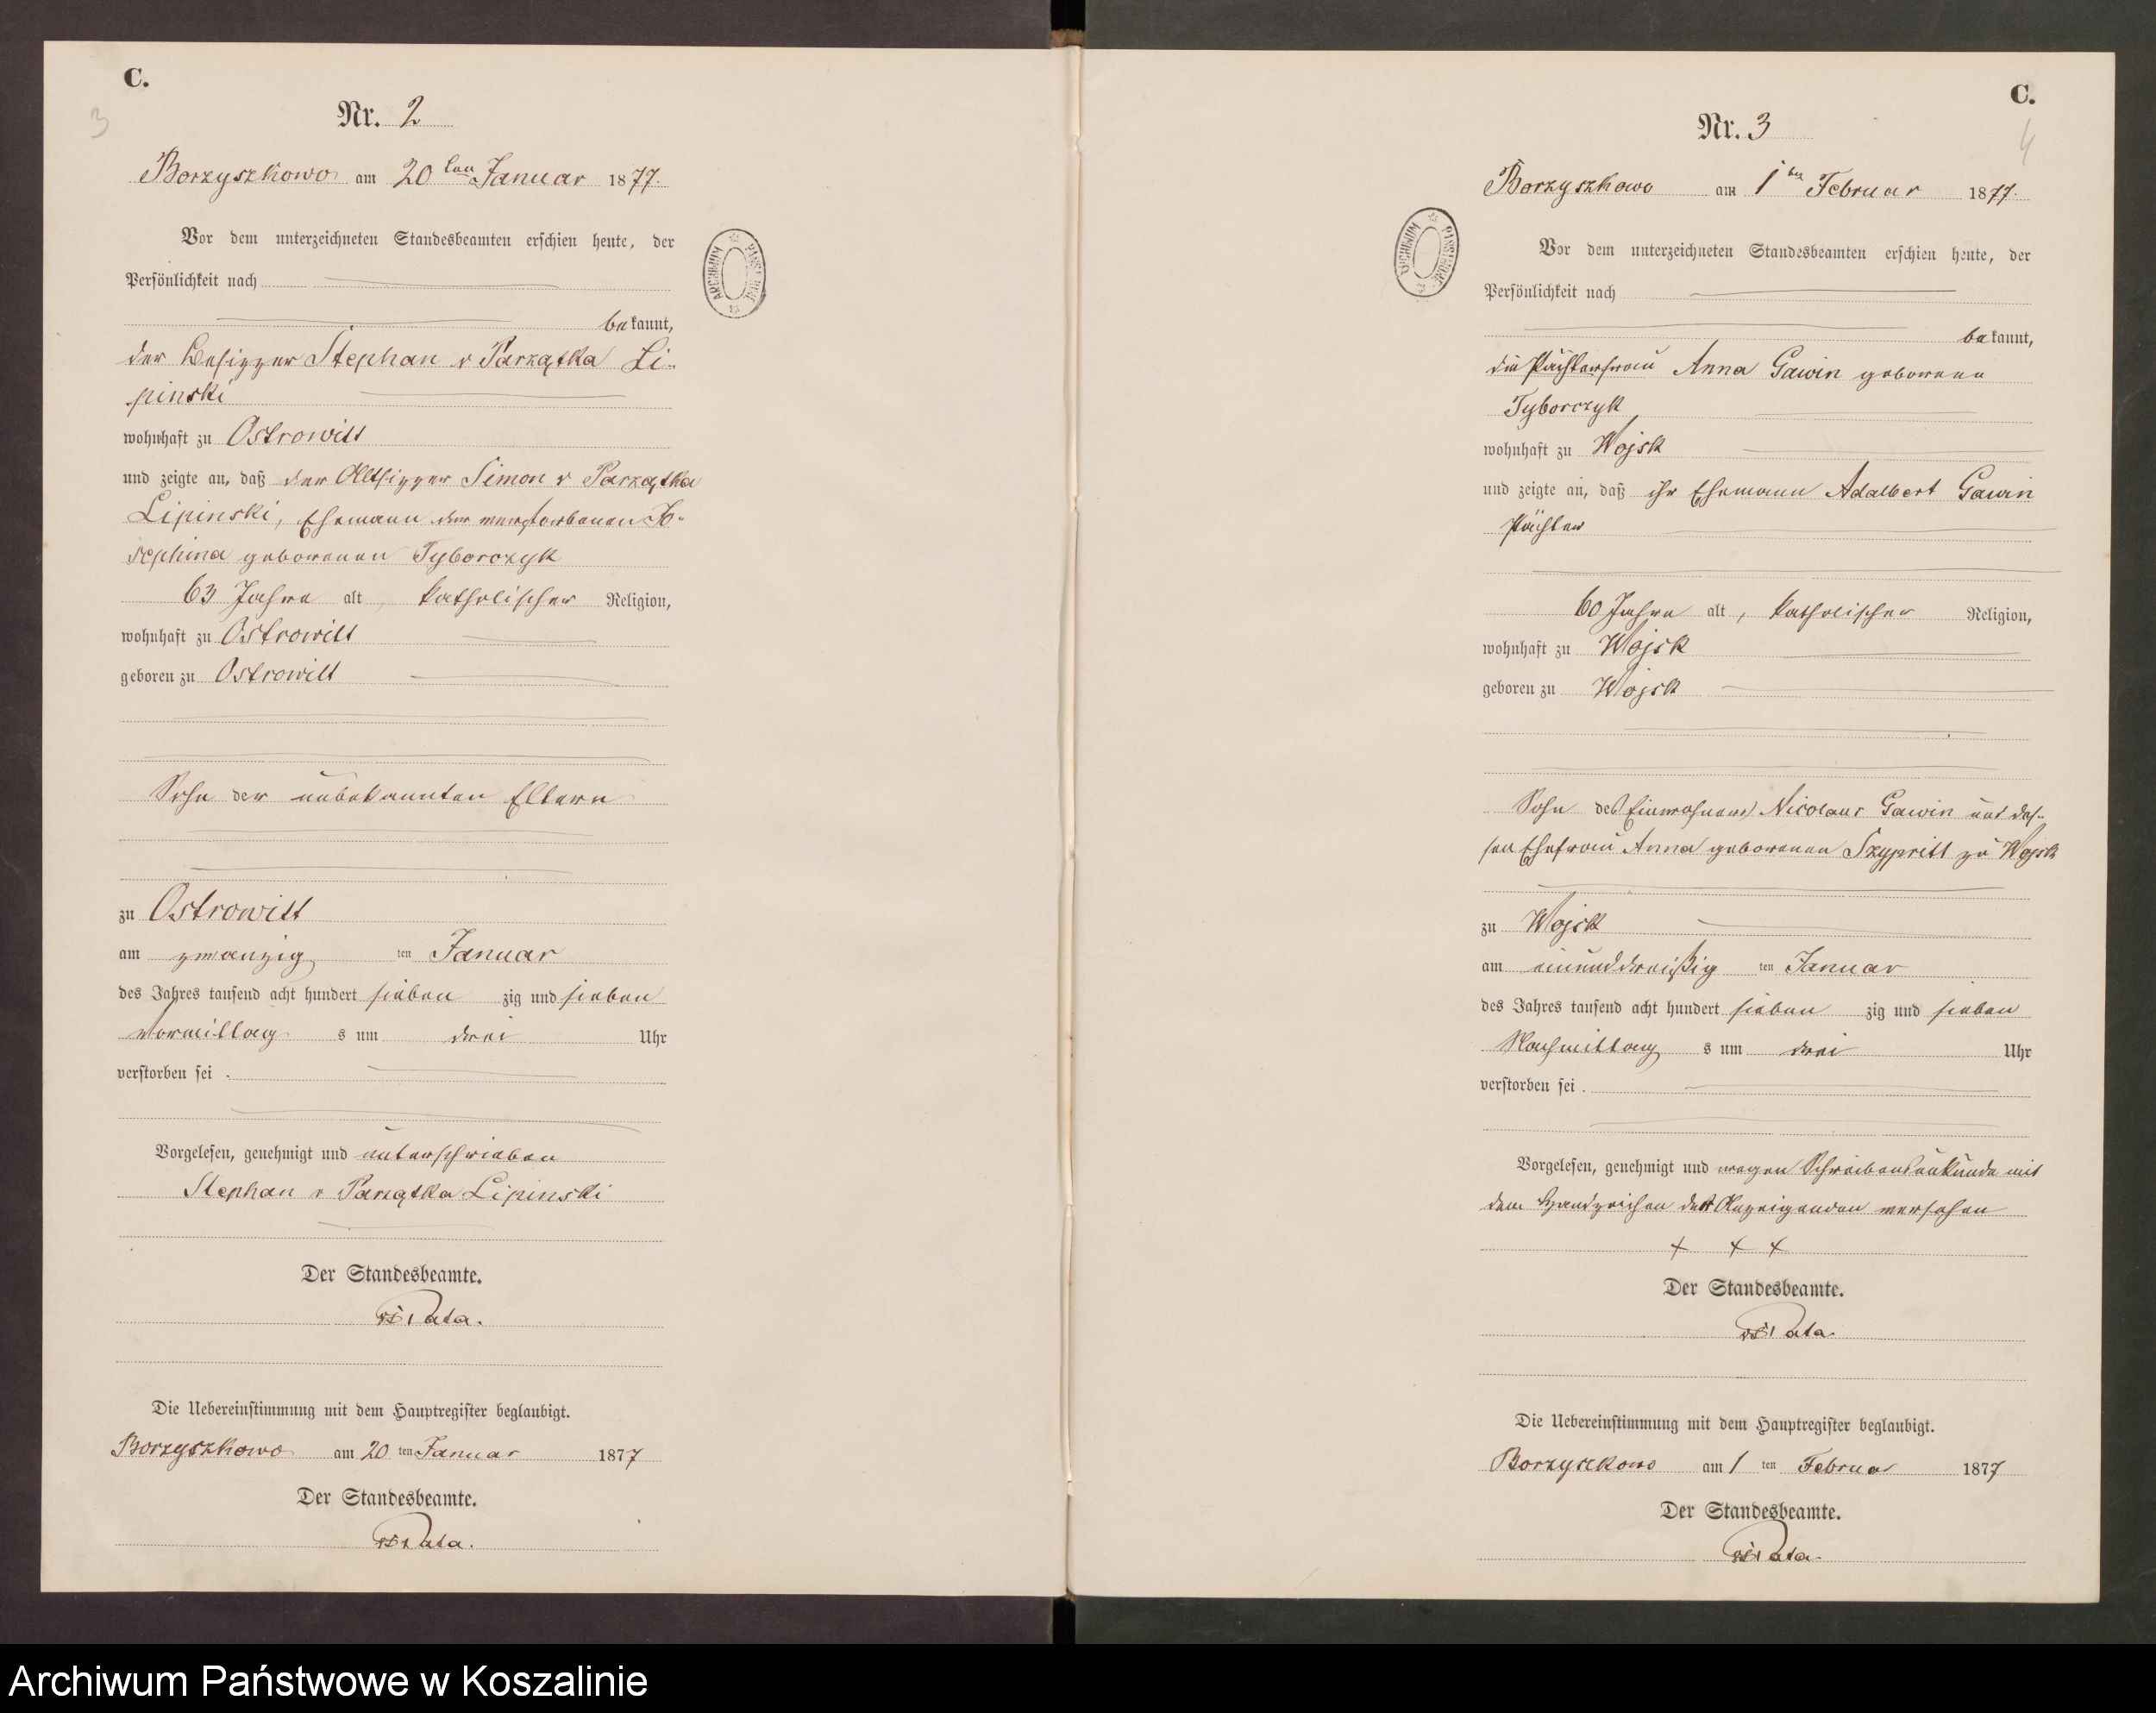 C.
3
Nr. 2
Borzyszkowo am 20 ten Januar 1877.
Vor dem unterzeichneten Standesbeamten erschien heute, der
Persönlichkeit nach
bekannt,
der Besitzer Stephan v Parzątka Li-
pinski
wohnhaft zu Ostrowitt
und zeigte an, daß der Altsitzer Simon v Parzątka
Lipinski, Ehemann der verstorbenen Jo-
sephina geborenen Tyborczyk
63 Jahre alt, katholischer Religion,
wohnhaft zu Ostrowitt
geboren zu Ostrowitt
Sohn der unbekannten Eltern
zu Ostrowitt
am zwanzig ten Januar
des Jahres tausend acht hundert sieben zig und sieben
vormittag s um drei Uhr
verstorben sei.
Vorgelesen, genehmigt und unterschrieben
Stephan v Parzątka Lipinski
Der Standesbeamte.
Pata.
Die Uebereinstimmung mit dem Hauptregister beglaubigt.
Borzyszkowo am 20 ten Januar 1877
Der Standesbeamte.
Pata.
ARCHIWUM PAŃSTWOWE
C.
4
Nr. 3
Borzyszkowo am 1 ten Februar 1877.
Vor dem unterzeichneten Standesbeamten erschien heute, der
Persönlichkeit nach
bekannt,
die Pächterfrau Anna Gawin geborene
Tyborczyk
wohnhaft zu Wojsk
und zeigte an, daß ihr Ehemann Adalbert Gawin
Pächter
60 Jahre alt, katholischer Religion,
wohnhaft zu Wojsk
geboren zu Wojsk
Sohn des Einwohners Nicolaus Gawin und des-
sen Ehefrau Anna geborenen Szypritt zu Wojsk
zu Wojsk
am einunddreißig ten Januar
des Jahres tausend acht hundert sieben zig und sieben
Nachmittag s um drei Uhr
verstorben sei.
Vorgelesen, genehmigt und wegen Schreibensunkunde mit
dem Handzeichen der Anzeigenden versehen
+ + +
Der Standesbeamte.
Pata.
Die Uebereinstimmung mit dem Hauptregister beglaubigt.
Borzyszkowo am 1 ten Februar 1877
Der Standesbeamte.
Pata.
ARCHIWUM PAŃSTWOWE
Archiwum Państwowe w Koszalinie